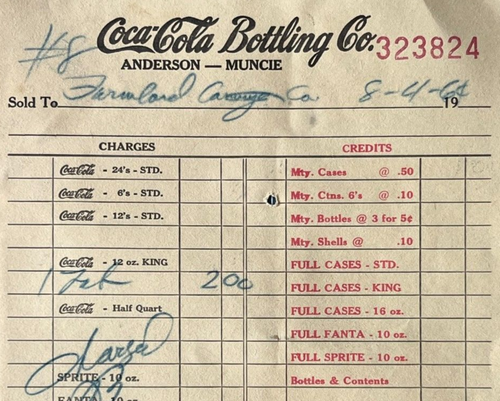 #8 Coca-Cola Bottling Co. 323824
ANDERSON — MUNCIE
Sold To Farmland Co. 8-4-6 19
CHARGES CREDITS
Coca-Cola - 24's - STD. Mty. Cases @ .50
Coca-Cola - 6's - STD. Mty. Ctns. 6's @ .10
Coca-Cola - 12's - STD. Mty. Bottles @ 3 for 5¢
Mty. Shells @ .10
Coca-Cola - 12 oz. KING FULL CASES - STD.
1 200 FULL CASES - KING
Coca-Cola - Half Quart FULL CASES - 16 oz.
FULL FANTA - 10 oz.
FULL SPRITE - 10 oz.
SPRITE - 10 oz. Bottles & Contents
FANTA - 10 oz.